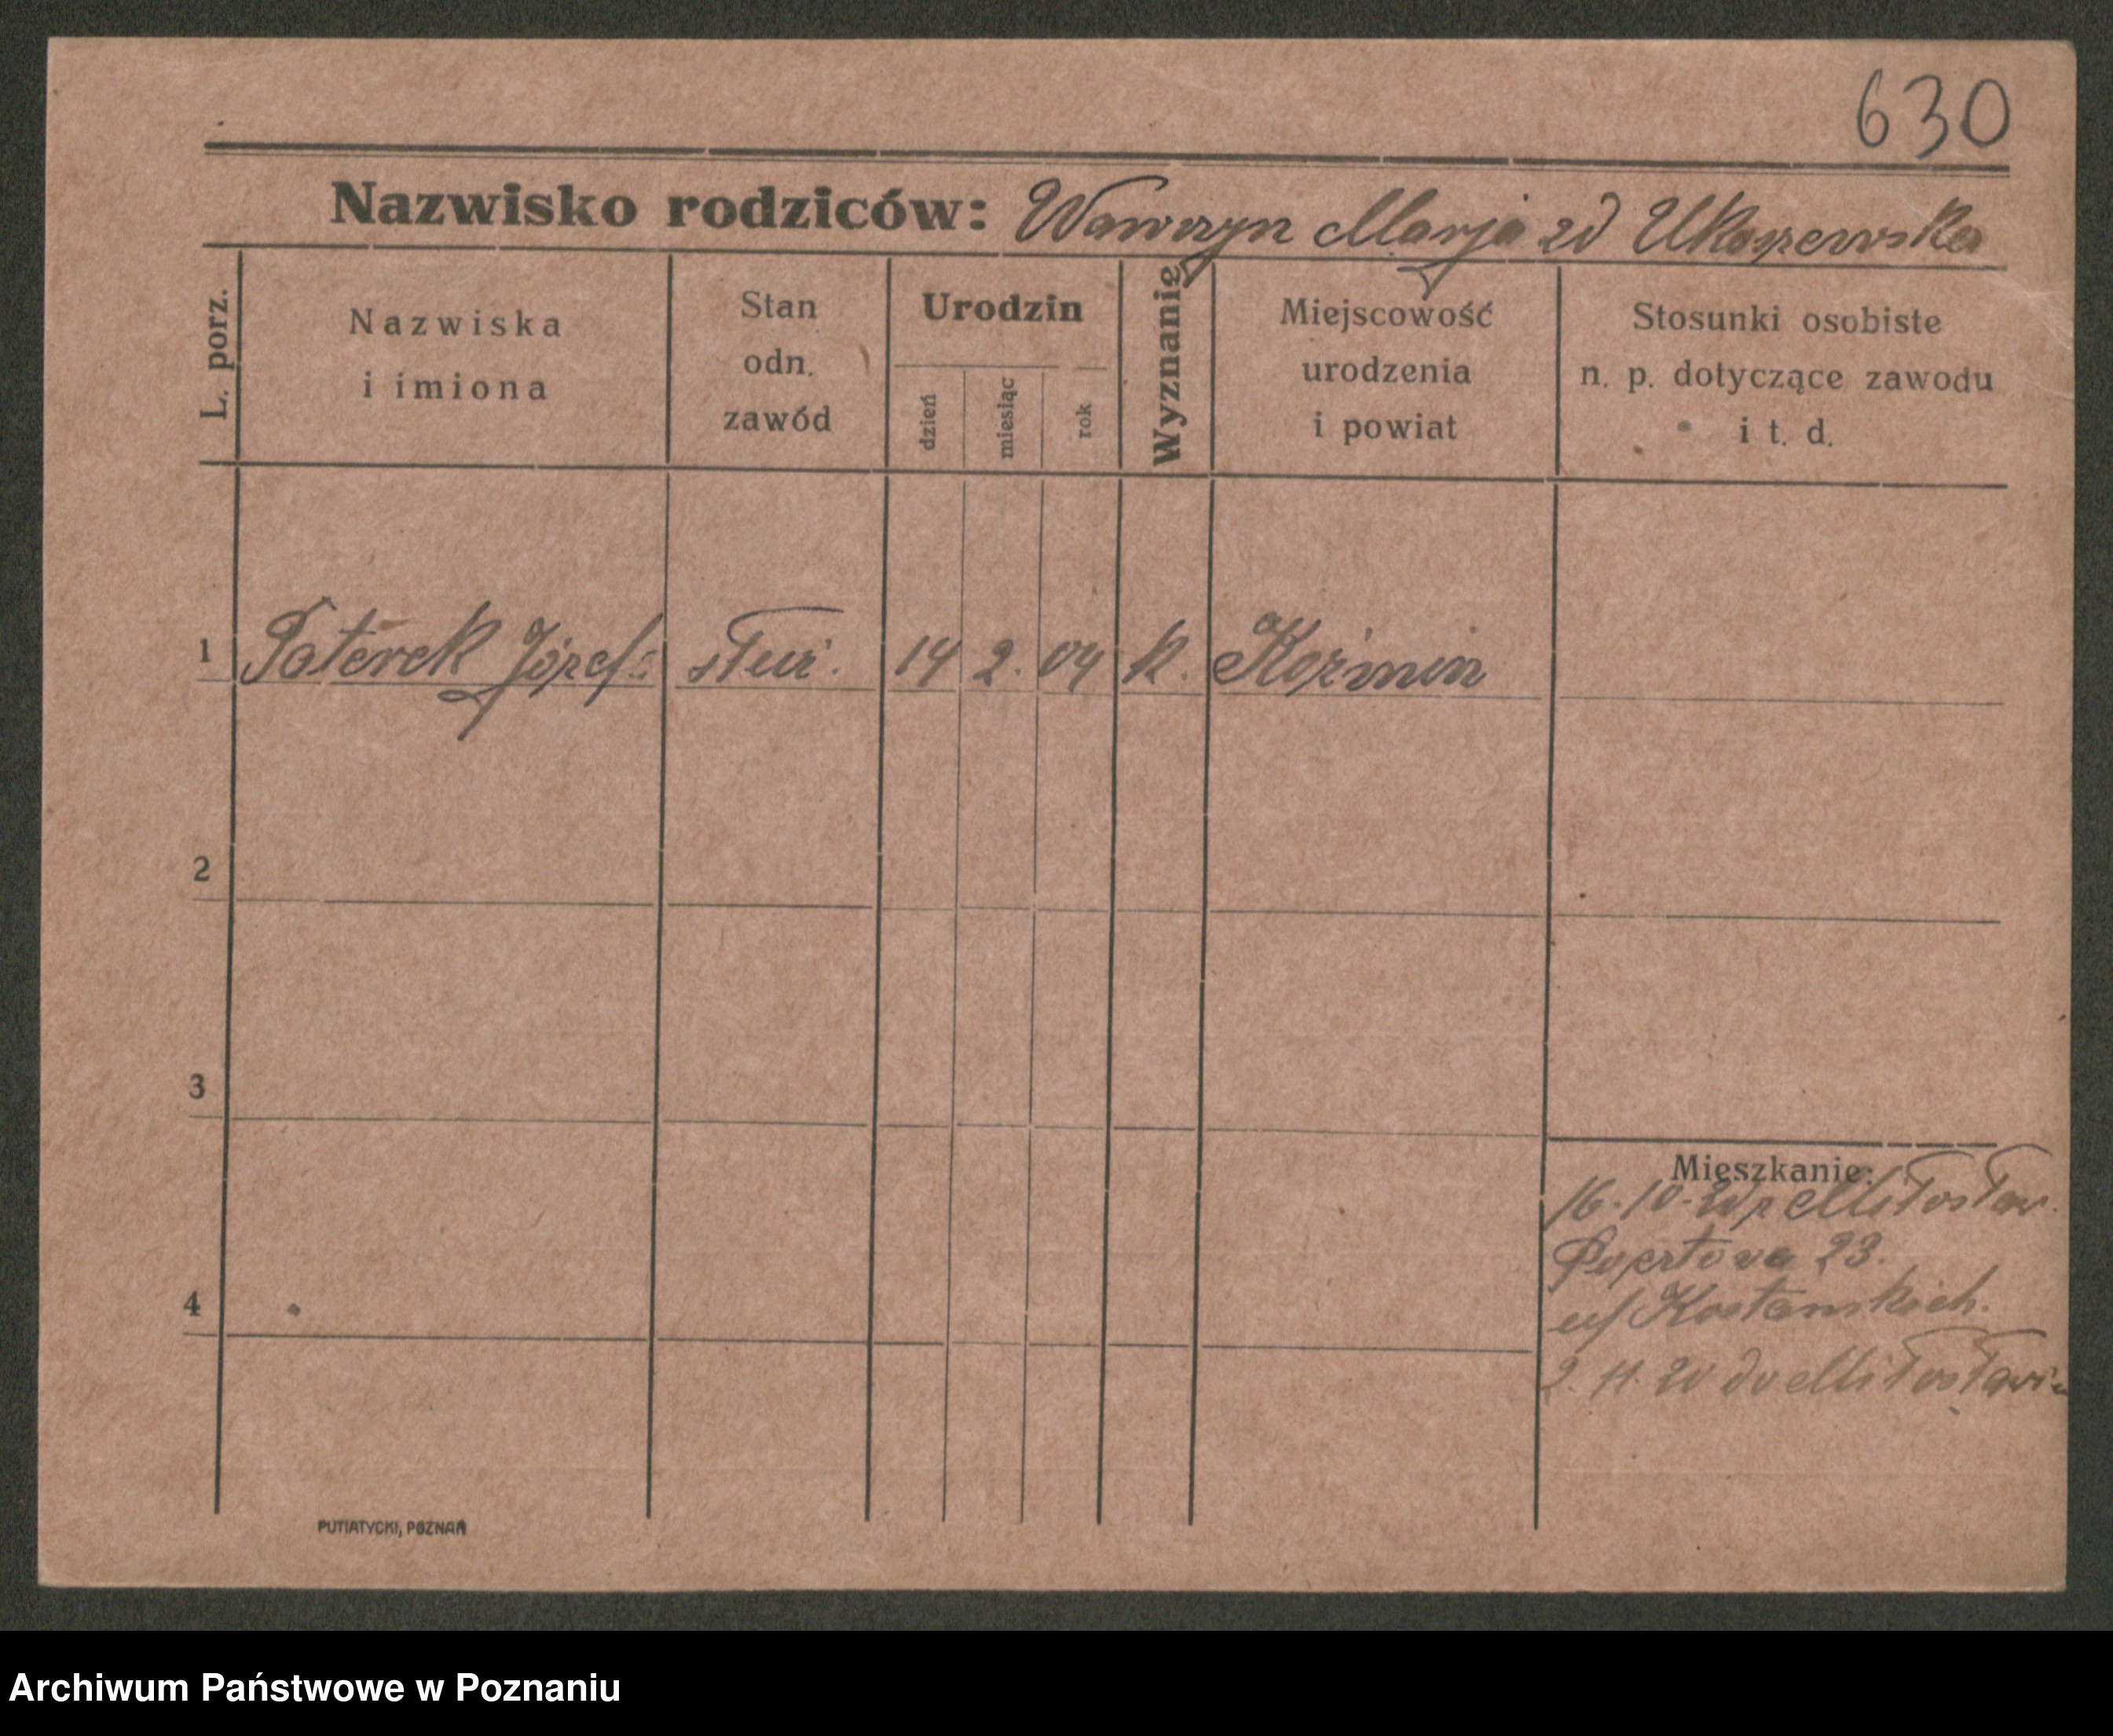 630
Nazwisko rodziców: Wawrzyn Marja zd Ukaszewska
L. porz.
Nazwiska
i imiona
Stan
odn.
zawód
Urodzin
dzień
miesiąc
rok
Wyznanie
Miejscowość
urodzenia
i powiat
Stosunki osobiste
n. p. dotyczące zawodu
i t. d.
1 Paterek Józefa służ. 14 2. 04 k. Koźmin
2
3
4
Mieszkanie:
16.10.20 z Miłosław.
Pocztowa 23.
u/ Kostanskich.
2.11.20 do Miłosławia
PUTIATYCKI, POZNAŃ
Archiwum Państwowe w Poznaniu